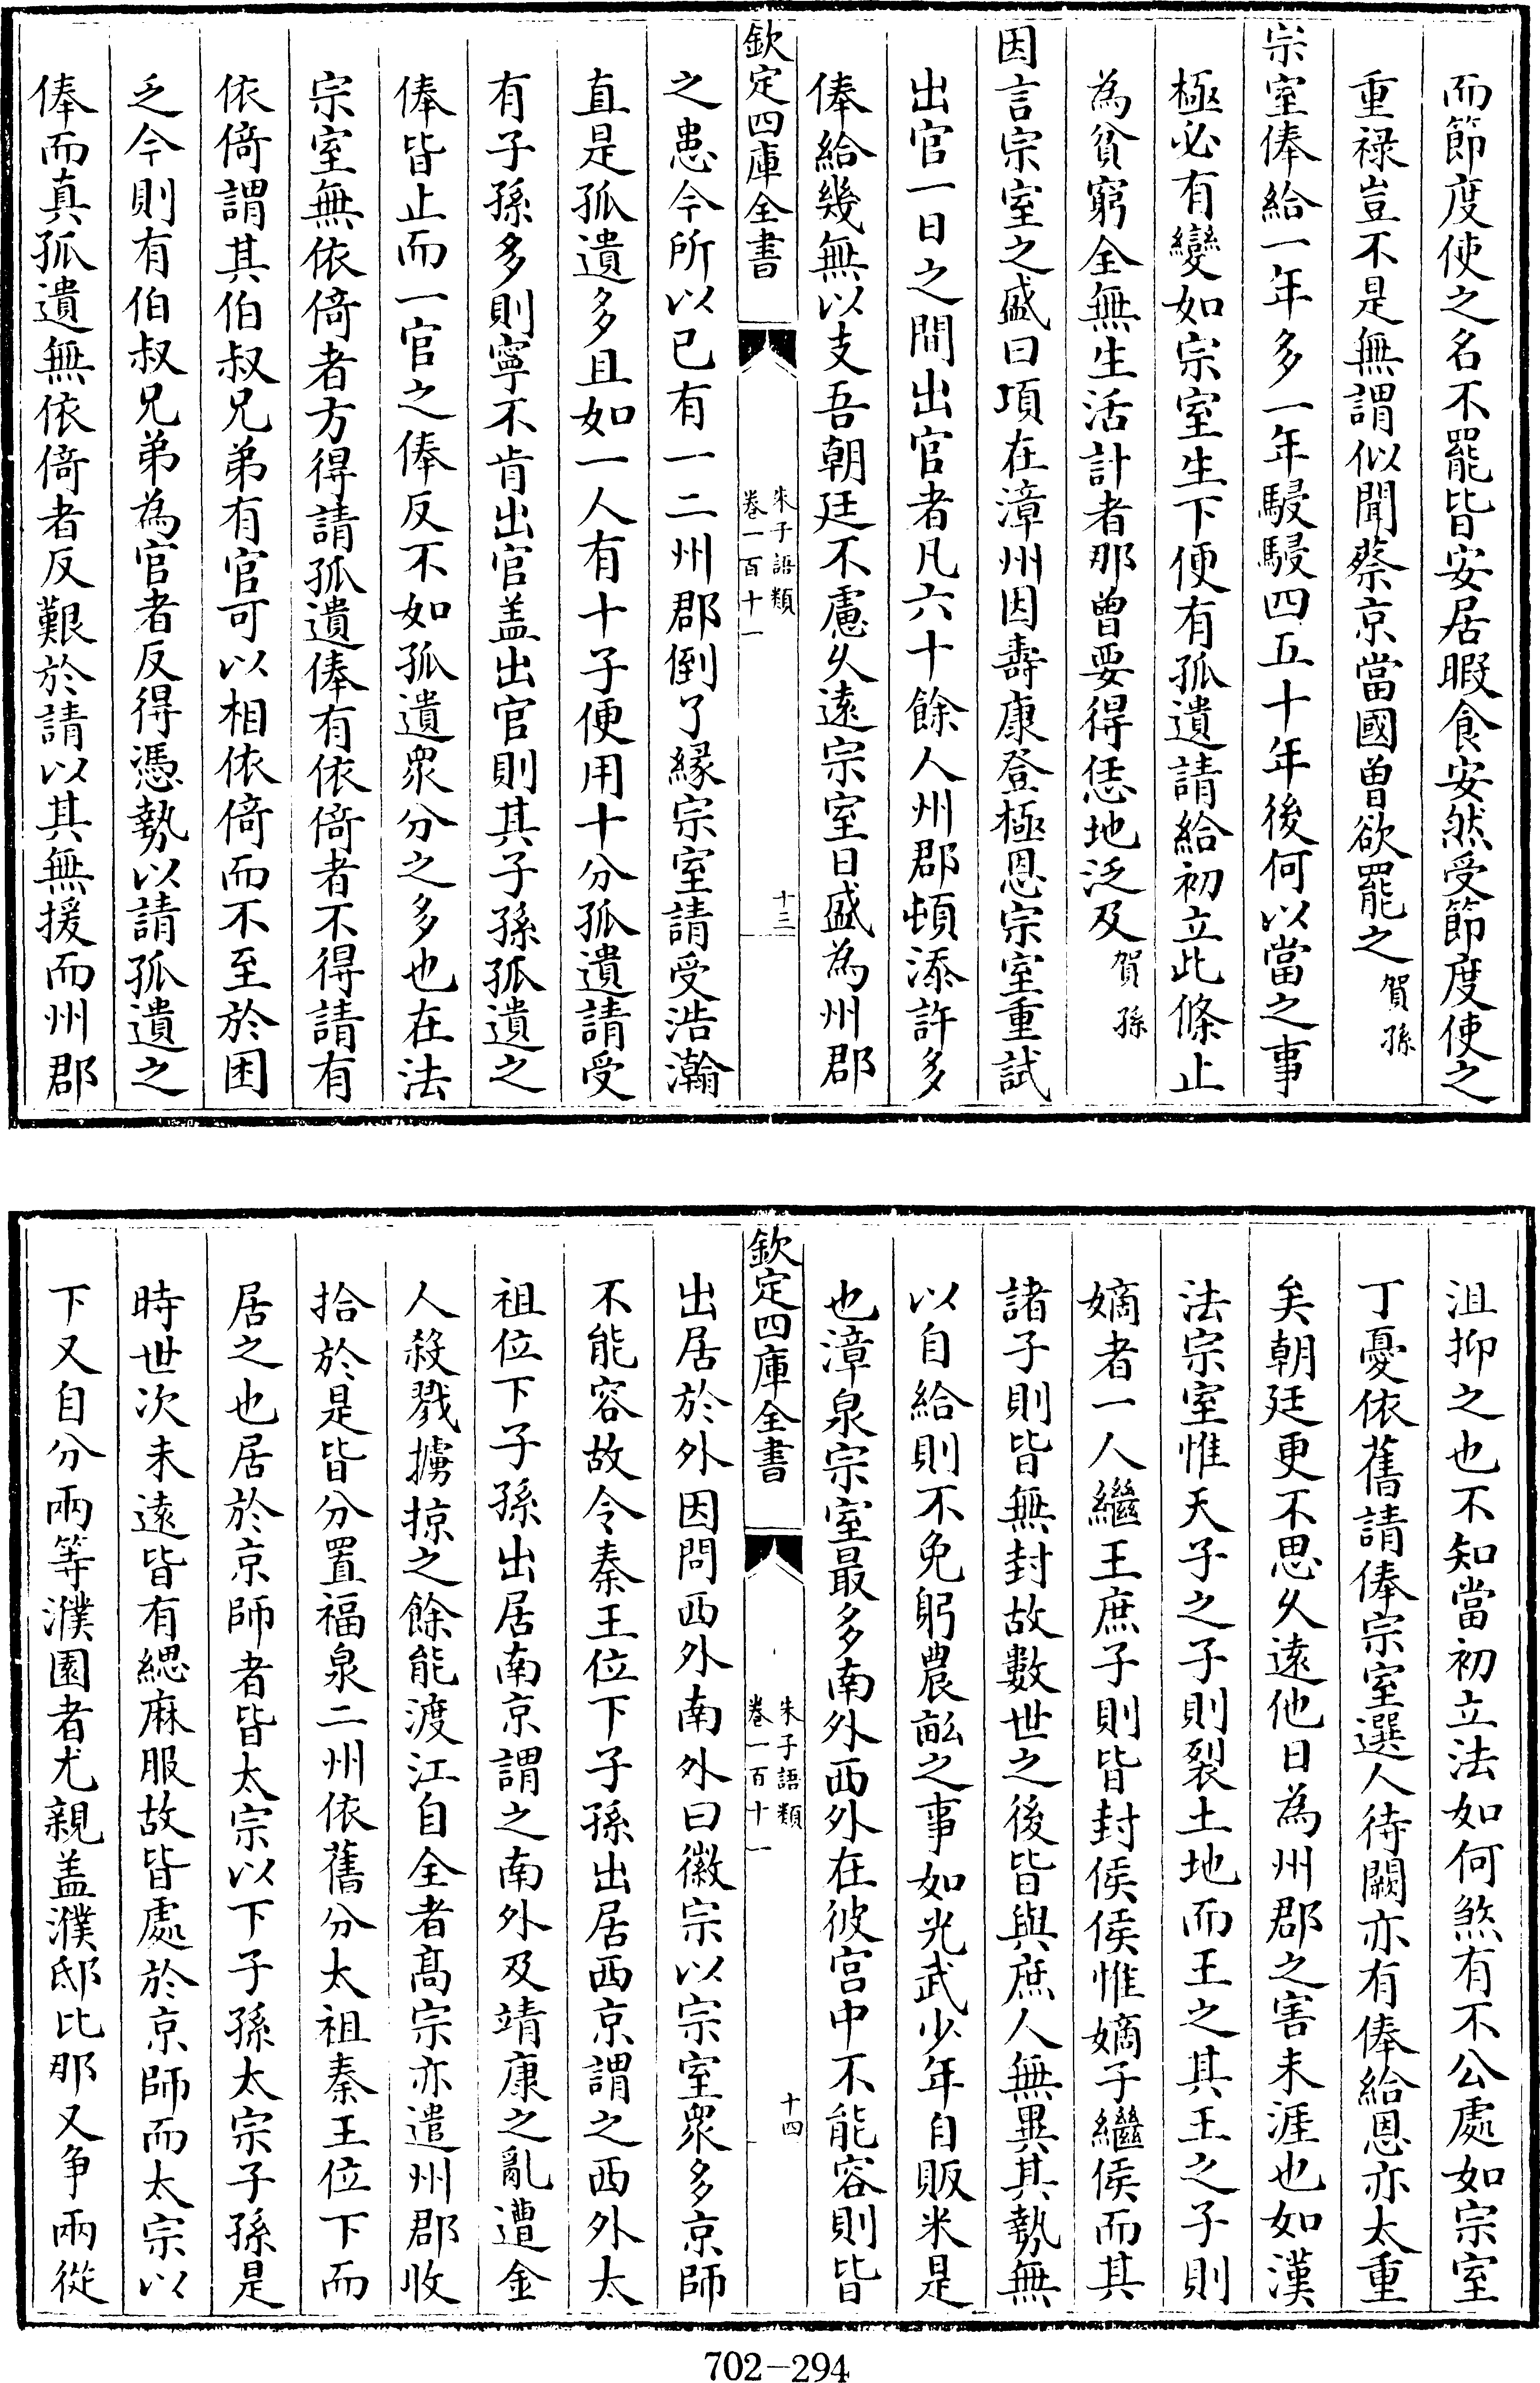 而節度使之名不罷皆安居暇食安然受節度使之
重禄豈不是無謂似聞蔡京當國曽欲罷之賀孫
宗室俸給一年多一年駸駸四五十年後何以當之事
極必有變如宗室生下便有孤遺請給初立此條止
為貧窮全無生活計者那曽要得恁地泛及賀孫
因言宗室之盛曰項在漳州因壽康登極恩宗室重試
出官一日之間出官者凡六十餘人州郡頓添許多
俸給幾無以支吾朝廷不慮乆逺宗室日盛為州郡
欽定四庫全書
朱子語類
卷一百十一
十三
之患今所以已有一二州郡倒了縁宗室請受浩瀚
直是孤遺多且如一人有十子便用十分孤遺請受
有子孫多則寧不肯出官盖出官則其子孫孤遺之
俸皆止而一官之俸反不如孤遺衆分之多也在法
宗室無依倚者方得請孤遺俸有依倚者不得請有
依倚謂其伯叔兄弟有官可以相依倚而不至於困
乏今則有伯叔兄弟為官者反得憑勢以請孤遺之
俸而真孤遺無依倚者反艱於請以其無援而州郡
沮抑之也不知當初立法如何煞有不公處如宗室
丁憂依舊請俸宗室選人待闕亦有俸給恩亦太重
矣朝廷更不思乆逺他日為州郡之害未涯也如漢
法宗室惟天子之子則裂土地而王之其王之子則
嫡者一人繼王庶子則皆封侯侯惟嫡子繼侯而其
諸子則皆無封故數世之後皆與庶人無異其勢無
以自給則不免躬農畝之事如光武少年自販米是
也漳泉宗室最多南外西外在彼宫中不能容則皆
欽定四庫全書
朱子語類
卷一百十一
十四
出居於外因問西外南外曰徽宗以宗室衆多京師
不能容故令秦王位下子孫出居西京謂之西外太
祖位下子孫出居南京謂之南外及靖康之亂遭金
人殺戮擄掠之餘能渡江自全者髙宗亦遣州郡收
拾於是皆分置福泉二州依舊分太祖秦王位下而
居之也居於京師者皆太宗以下子孫太宗子孫是
時世次未逺皆有緦麻服故皆處於京師而太宗以
下又自分兩等濮園者尤親盖濮邸比那又争兩從
702-294